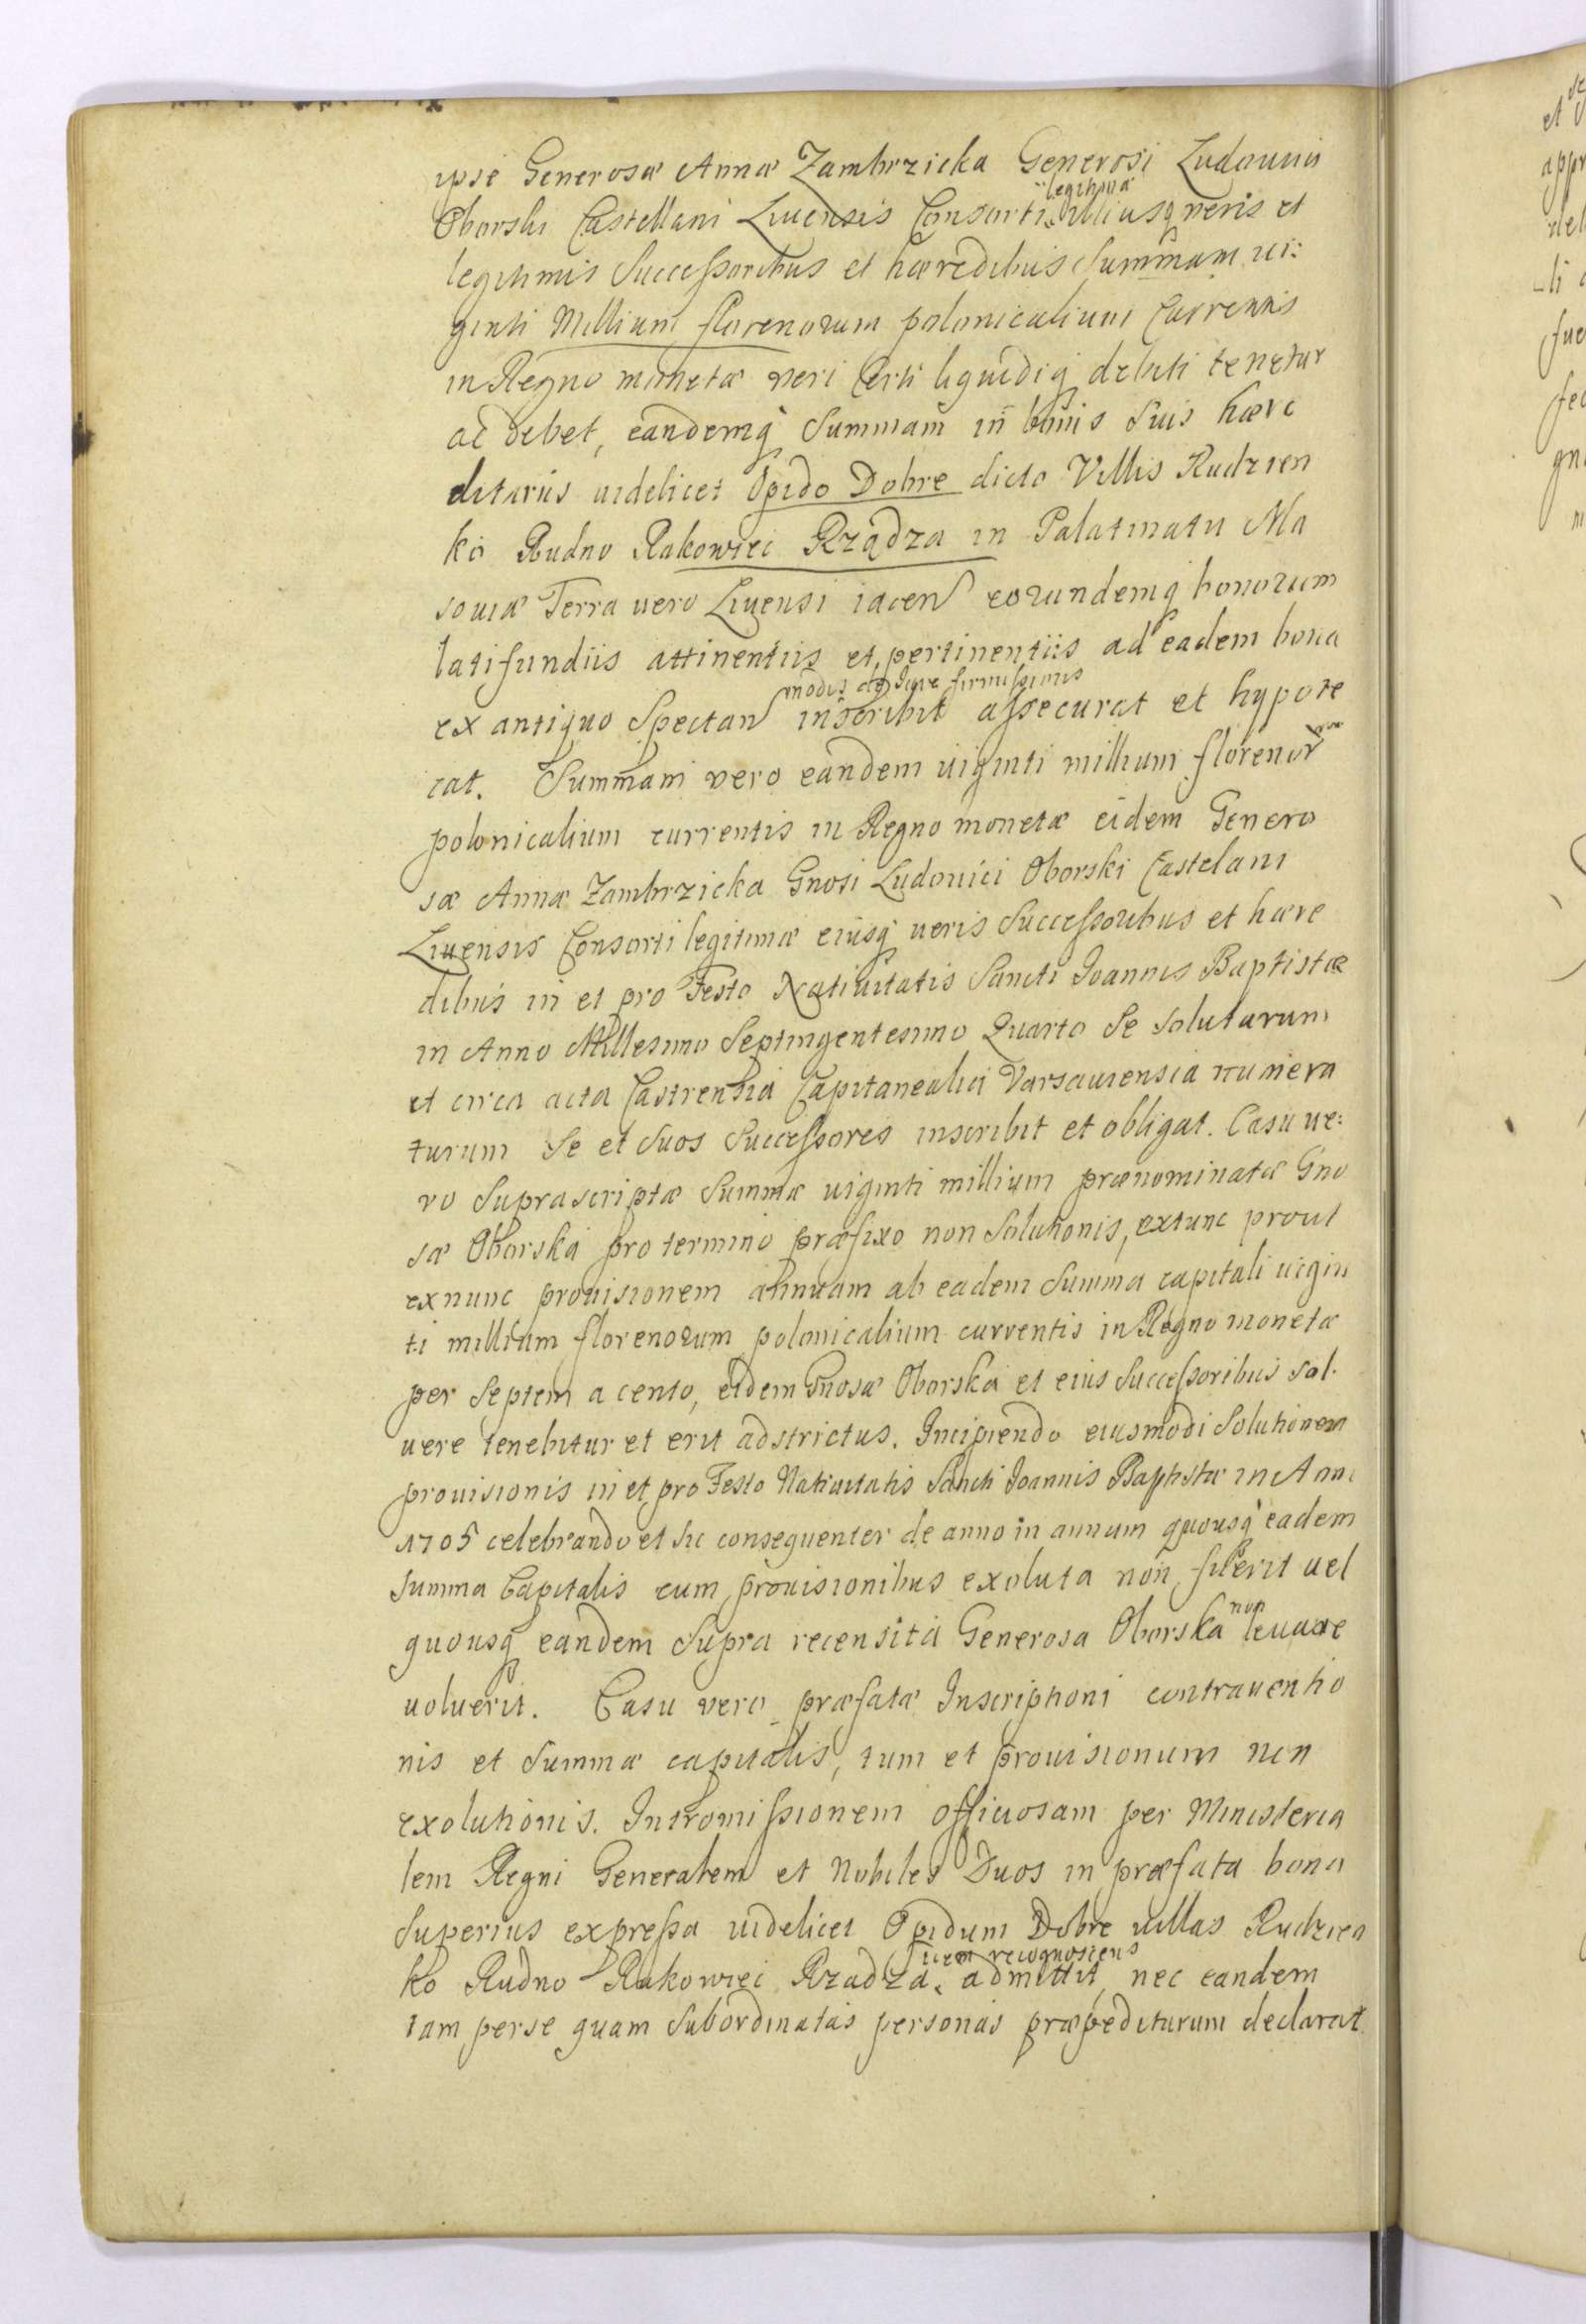 ipse Generosæ Annæ Zambrzicka Generosi Ludouici
Oborski Castellani Liuensis Consorti legitimæ illiusq veris et
legitimis Successoribus et hæredibus Summam ui:
ginti Millium florenorum polonicalium Currentis
in Regno monetæ veri Certi liquidiq debiti tenetur
ac debet, eandemq Summam in bonis Suis hære
ditariis uidelicet Opido Dobre dicto Villis Rudzien
ko Rudno Rakowiec Rządza in Palatinatu Ma
souiæ Terra uero Liuensi iacen eorundemq bonorum
latifundiis attinentiis et pertinentiis ad eadem bona
ex antiquo Spectan modis de Iure firmissimis inscribit assecurat et hypote
cat. Summam vero eandem uiginti millium florenor
polonicalium currentis in Regno monetæ eidem Genero
sæ Annæ Zambrzicka Gnosi Ludouici Oborski Castelani
Liuensis Consorti legitimæ eiusq ueris Successoribus et hære
dibus in et pro Festo Natiuitatis Sancti Ioannis Baptistæ
in Anno Millesimo Septingentesimo Quarto Se soluturum
et circa acta Castrensia Capitanealia Varsauiensia numera
turum Se et Suos Successores inscribit et obligat. Casu ue:
ro Suprascriptæ Summæ uiginti millium prænominatæ Gno
sæ Oborska pro termino præfixo non Solutionis, extunc prout
exnunc prouisionem annuam ab eadem Summa capitali uigin
ti millium florenorum polonicalium currentis in Regno monetæ
per Septem a cento, eidem Gnosæ Oborska et eius Successoribus sol
uere tenebitur et erit adstrictus. Incipiendo eiusmodi Solutionem
prouisionis in et pro Festo Natiuitatis Sancti Ioannis Baptistæ in Anno
1705 celebrando et sic consequenter de anno in annum quousq eadem
Summa Capitalis cum prouisionibus exoluta non fuerit uel
quousq eandem Supra recensita Generosa Oborska non leuare
uoluerit. Casu vero præfatæ Inscriptioni contrauentio
nis et Summæ capitalis, tum et prouisionum non
exolutionis. Intromissionem officiosam per Ministeria
lem Regni Generalem et Nobiles Duos in præfata bona
Superius expressa uidelicet Opidum Dobre uillas Rudzien
ko Rudno Rakowiec Rzadza, idem recognoscens admittit, nec eandem
tam perse quam Subordinatas personas præpediturum declarat